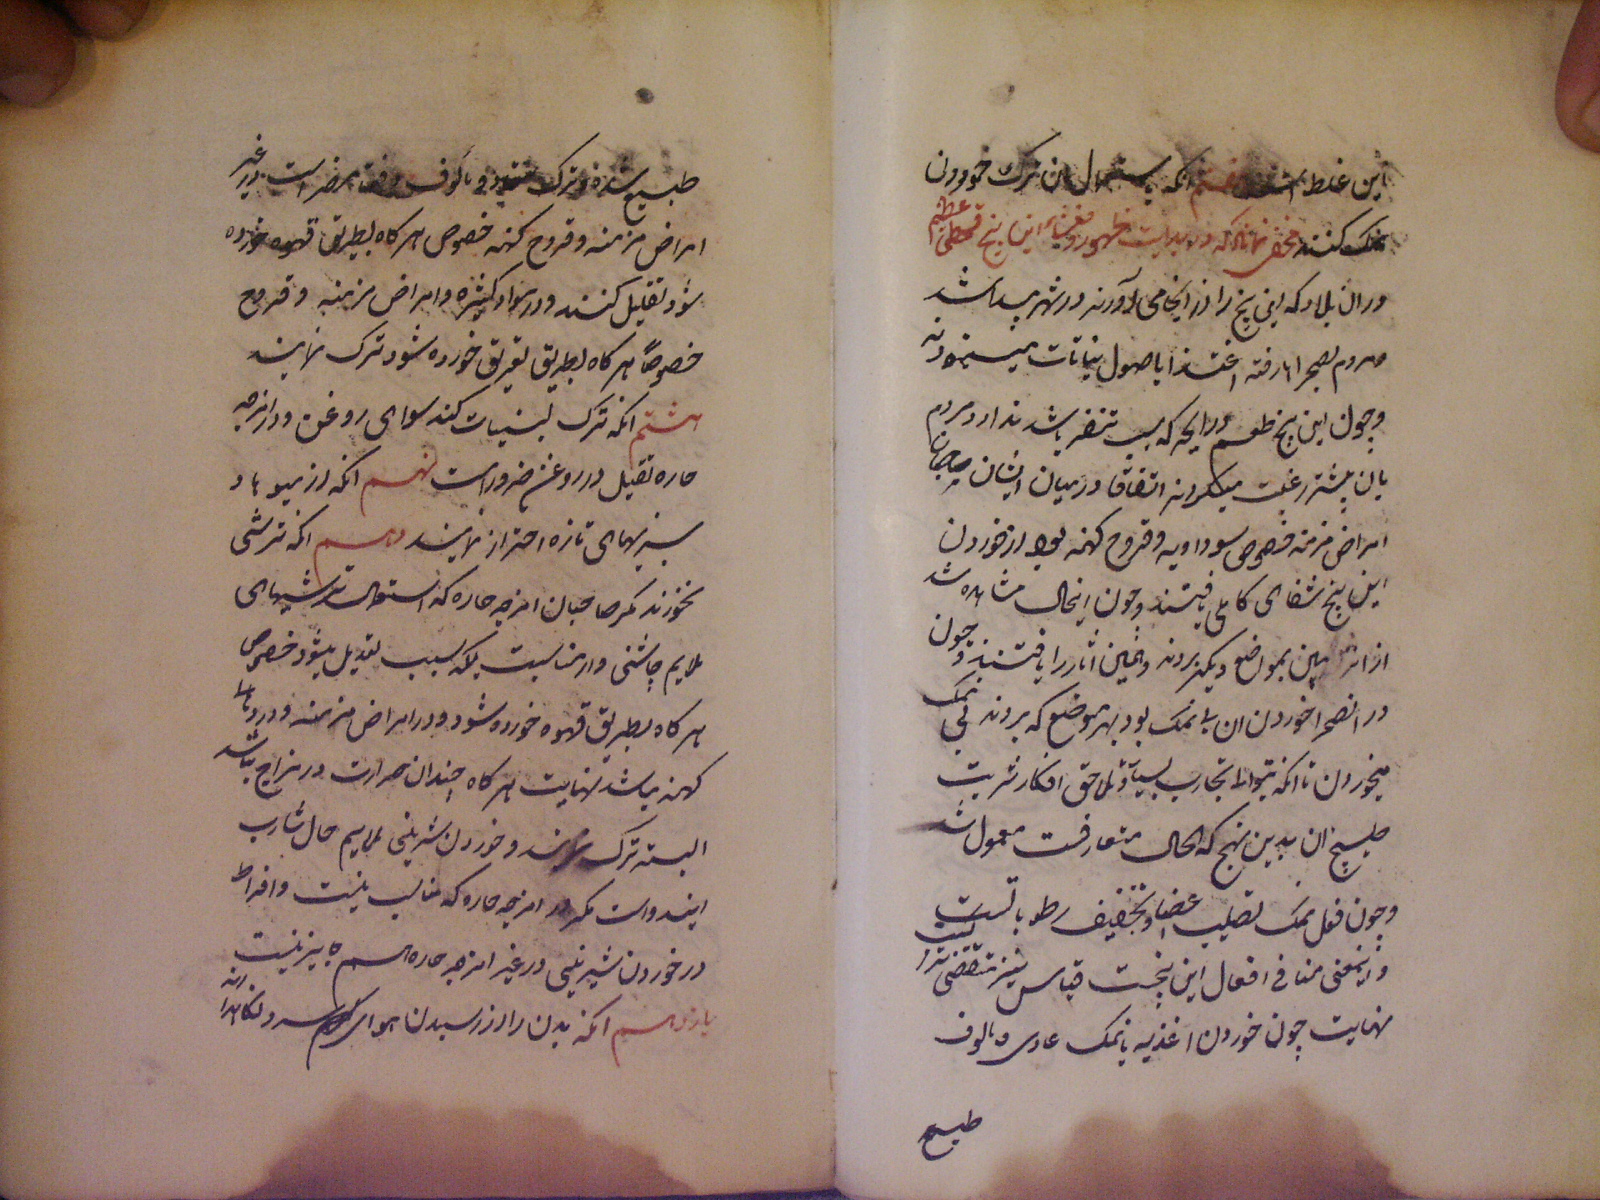 این غلط است هفتم انکه باستعمال ان ترک خوردن
نمک کنند مخفی نماناد که در بدایت ظهور و فشا این بیخ قحطی عظیم
دران بلاد که این بیخ را از انجا می آورند در شهر پیدا شد
مردم بصحرا رفته اغتذا باصول نباتات می نمودند
و چون این بیخ طعم و رایحه که سبب تنفر باشد ندارد مردم
بان بیشتر رغبت میکردند اتفاقا در میان ایشان صاحبان
امراض مزمنه خصوص سوداویه و قروح کهنه بود از خوردن
این بیخ شفای کامل یافتند و چون اینحال مشاهده شد
از انزمین بمواضع دیگر بردند و همین آثار را یافتند و چون
در انصحرا خوردن ان بی نمک بود بهر موضع که بردند بی نمک
میخوردن تا انکه بتواطا تجارب بسیار و تلاحق افکار شربت
طبیخ ان بدین نهج که الحال متعارفست معمول شد
و چون فعل نمک تصلیب اعضا و تجفیف رطوباتست
و اینمعنی منافی افعال این بیخست قیاس نیز مقتضی ترک است
نهایت چون خوردن اغذیه با نمک عادی و مالوف
طبیع
طبیع شده و ترک معتاد و مالوف دفعة مضر است در غیر
امراض مزمنه و قروح کهنه خصوص هرکاه بطریق قهوه خورده
شود تقلیل کنند و در مواد کثیره و امراض مزمنه و قروح
خصوصاً هرکاه بطریق تعریق خورده شود ترک نمایند
هشتم انکه ترک لبنیات کند سوای روغن و در امزجه
حاره تقلیل در روغن ضرور است نهم انکه از میوها و
سبزیهای تازه احتراز نمایند دهم انکه ترشی
نخورند مکر صاحبان امزجه حاره که استعمال ترشیهای
ملایم چاشنی دار مناسبت بلکه سبب تعدیل میشود خصوص
هرکاه بطریق قهوه خورده شود و در امراض مزمنه و دردهای
کهنه نباشد نهایت هرکاه چندان حرارت در مزاج نباشد
البته ترک نمایند و خوردن شیرینی ملایم حال شارب
ایندواست مکر در امزجه حاره که مناسب نیست و افراط
در خوردن شیرینی در غیر امزجه حاره هم جایز نیست
یازدهم انکه بدن را از رسیدن هوای سرد نکاهدارند